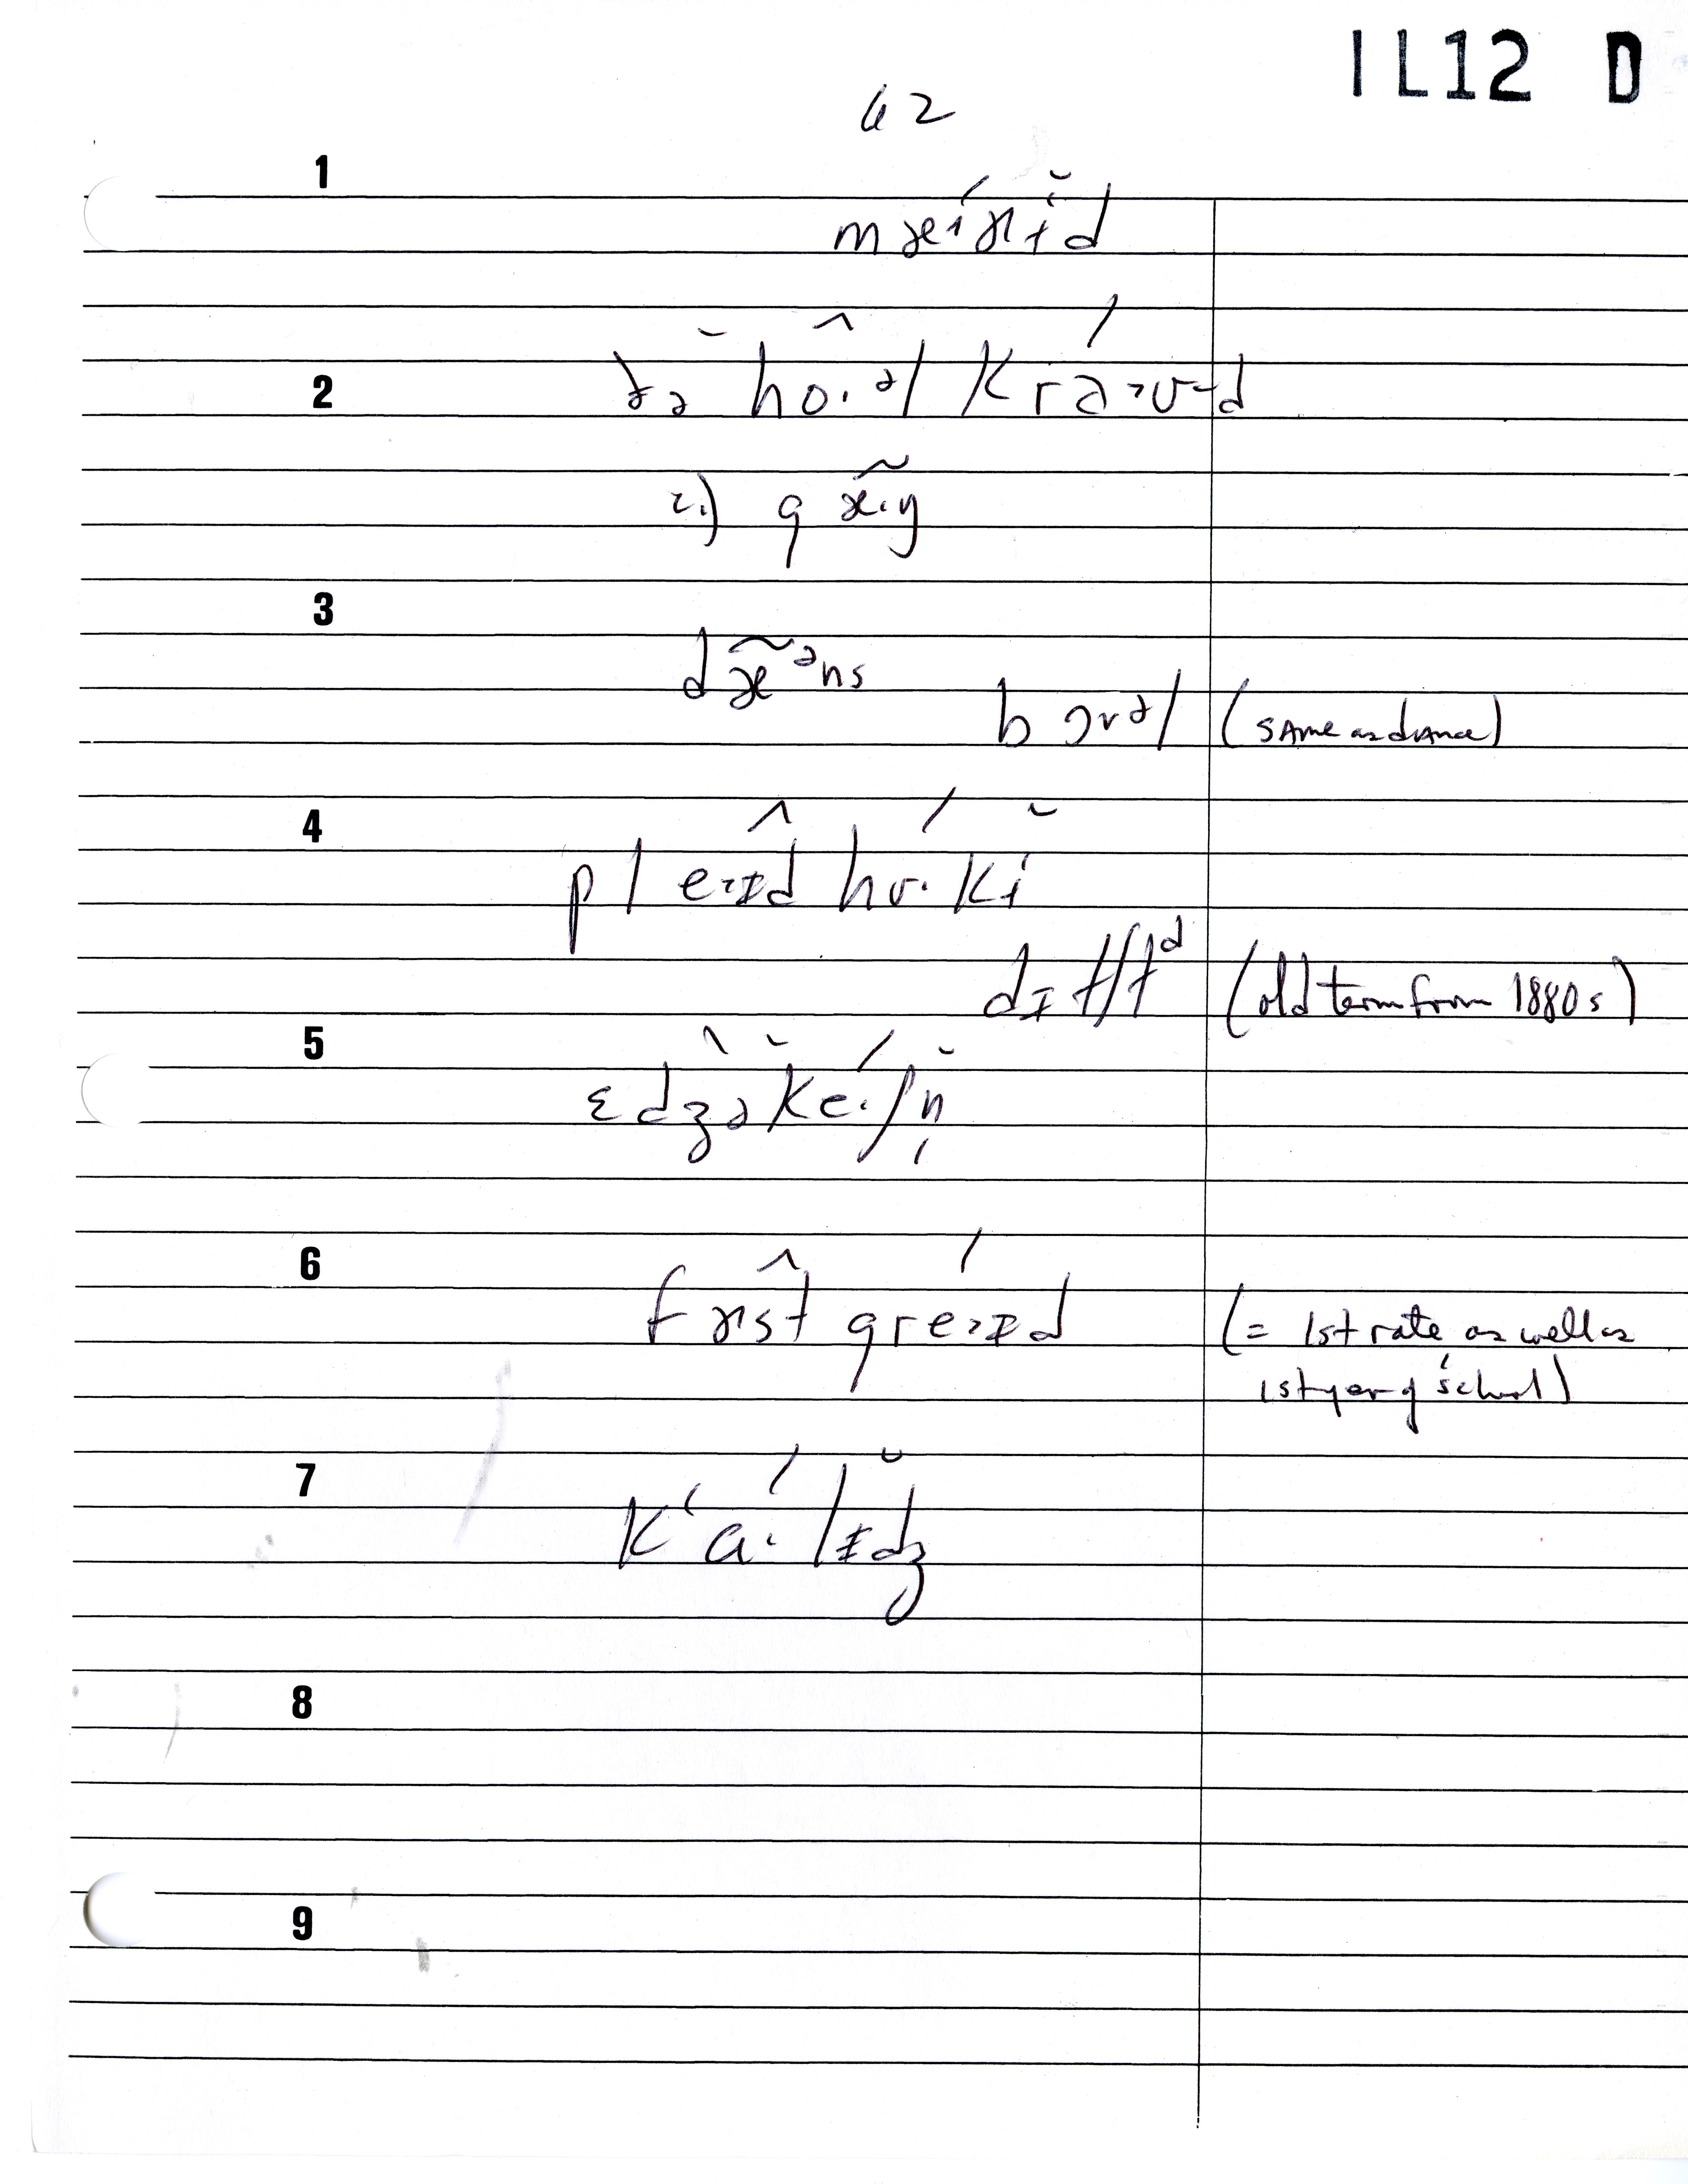 IL12 D
62
1
mæɨʹɚɨ̆d
2
ðə̆ ho̭.əl krá>ʊ-d
2.) g æ̃.ŋ
3
dæ̃ᵊns
bɔrəl (same as dance)
4
plḙ>ɪd hʊ́.kĭ
dɪtʃtᵈ (old term from 1880s)
5
ɛ̂dʒə̆ké.ʃn̩̆
6
fɚ̂st gré>ɪd (= 1st rate as well as
1st year of school)
7
kʻá.lɪ̆dʒ
8
9